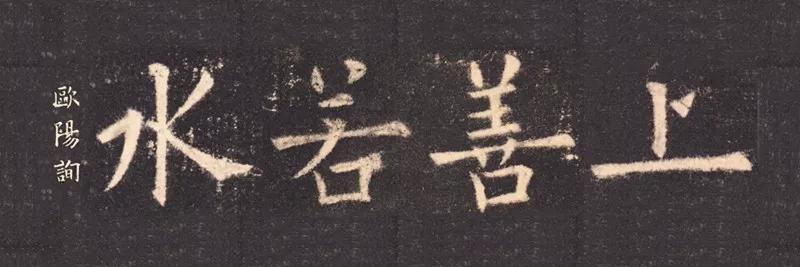 上善若水
歐陽詢